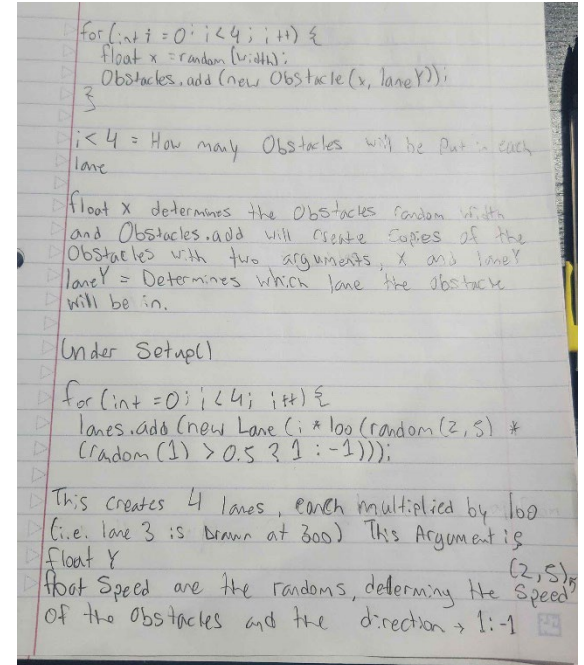 for (int i = 0; i < 4; i++) {
float x = random (width);
Obstacles.add (new Obstacle (x, laneY));
}
i < 4 = How many Obstacles will be put in each
lane
float x determines the Obstacles random width
and Obstacles.add will create copies of the
Obstacles with two arguments, x and laneY
laneY = Determines which lane the obstacle
will be in.
Under Setup()
for (int = 0; i < 4; i++) {
lanes.add (new Lane (i * 100 (random (2,5) *
(random (1) > 0.5 ? 1 : -1)));
This creates 4 lanes, each multiplied by 100
(i.e. lane 3 is drawn at 300) This Argument is
float Y
(2,5),
float Speed are the randoms, determing the Speed
of the Obstacles and the direction → 1:-1